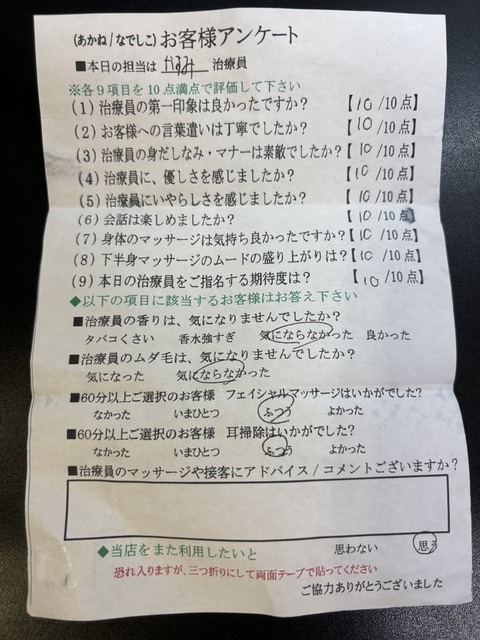 (あかね/なでしこ)お客様アンケート
■本日の担当は かすみ 治療員
※各9項目を10点満点で評価して下さい
(1)治療員の第一印象は良かったですか?【10/10点】
(2)お客様への言葉遣いは丁寧でしたか?【10/10点】
(3)治療員の身だしなみ・マナーは素敵でしたか?【10/10点】
(4)治療員に、優しさを感じましたか?【10/10点】
(5)治療員にいやらしさを感じましたか?【10/10点】
(6)会話は楽しめましたか?【10/10点】
(7)身体のマッサージは気持ち良かったですか?【10/10点】
(8)下半身マッサージのムードの盛り上がりは?【10/10点】
(9)本日の治療員をご指名する期待度は?【10/10点】
◆以下の項目に該当するお客様はお答え下さい
■治療員の香りは、気になりませんでしたか?
タバコくさい 香水強すぎ 気にならなかった 良かった
■治療員のムダ毛は、気になりませんでしたか?
気になった 気にならなかった
■60分以上ご選択のお客様 フェイシャルマッサージはいかがでした?
なかった いまひとつ ふつう よかった
■60分以上ご選択のお客様 耳掃除はいかがでした?
なかった いまひとつ ふつう よかった
■治療員のマッサージや接客にアドバイス/コメントございますか?
◆当店をまた利用したいと 思わない 思う
恐れ入りますが、三つ折りにして両面テープで貼ってください
ご協力ありがとうございました